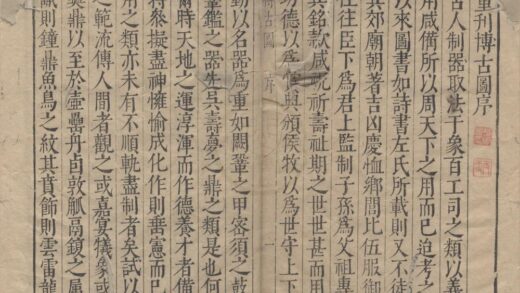 重刊博古圖序
古人制器取法于象百工司之類以義
用咸備所以周天下之用而已迨考之
以來圖書如詩書左氏所載則又不徒
其郊廟朝著吉凶慶恤鄉閭比伍服御
往往臣下爲君上監制子孫爲父祖專
其銘款咸祝祈壽祉期之世世甚而用
功德以爲信與頒侯牧以爲世守上下
古圖 序 一
動以名器爲重如闕鞏之甲密須之鼓
鞶鑑之器先吴壽夢之鼎之類是也何
爾時天地之運淳渾而作德養才者備
特篆擬盡神擁愉成化作則垂憲而已
用之類亦未有不順軌盡制者矣試以
之範流傳人間者觀之或嘉宴犧象或
奠鼎以至於壺罍丹卣敦觚鬲鏡之屬
欵則鍾鼎魚鳥之紋其賁飾則雲雷龍